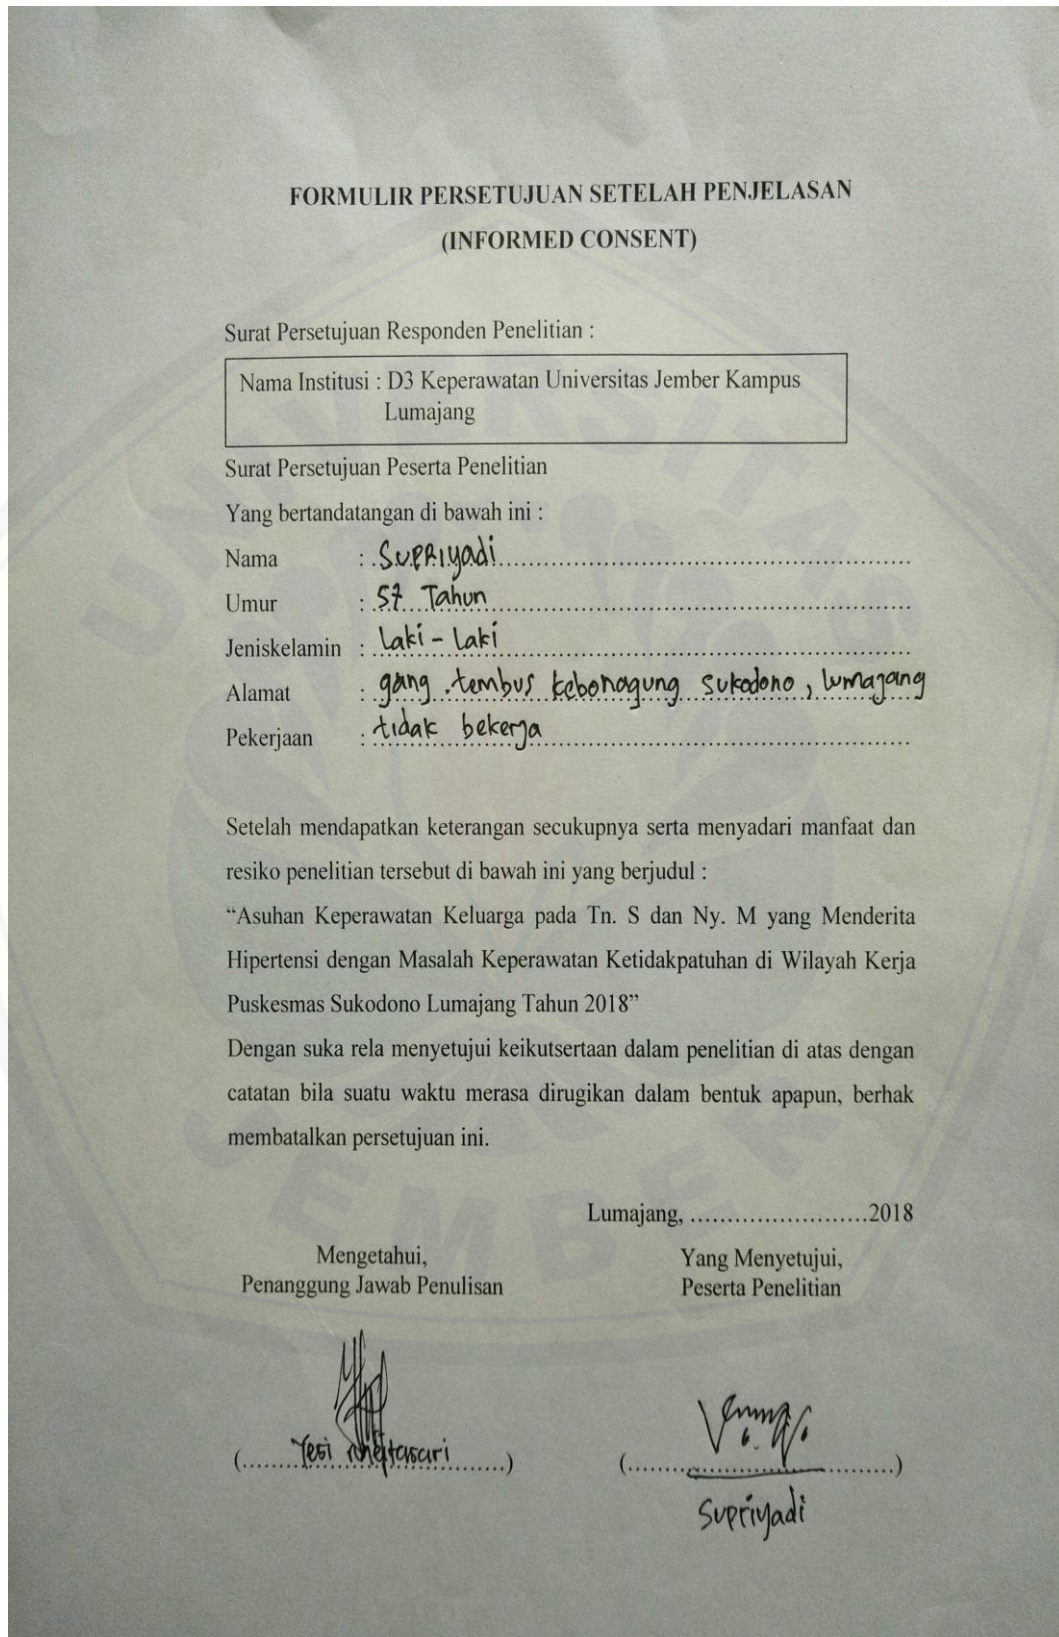 FORMULIR PERSETUJUAN SETELAH PENJELASAN
(INFORMED CONSENT)
Surat Persetujuan Responden Penelitian :
Nama Institusi : D3 Keperawatan Universitas Jember Kampus
Lumajang
Surat Persetujuan Peserta Penelitian
Yang bertandatangan di bawah ini :
Nama : Supriyadi
Umur : 57 Tahun
Jeniskelamin : Laki - Laki
Alamat : gang tembus kebonagung sukodono, lumajang
Pekerjaan : tidak bekerja
Setelah mendapatkan keterangan secukupnya serta menyadari manfaat dan
resiko penelitian tersebut di bawah ini yang berjudul :
“Asuhan Keperawatan Keluarga pada Tn. S dan Ny. M yang Menderita
Hipertensi dengan Masalah Keperawatan Ketidakpatuhan di Wilayah Kerja
Puskesmas Sukodono Lumajang Tahun 2018”
Dengan suka rela menyetujui keikutsertaan dalam penelitian di atas dengan
catatan bila suatu waktu merasa dirugikan dalam bentuk apapun, berhak
membatalkan persetujuan ini.
Lumajang, ........................2018
Mengetahui,
Penanggung Jawab Penulisan
Yang Menyetujui,
Peserta Penelitian
Yesi
Supriyadi
UNIVERSITAS
JEMBER